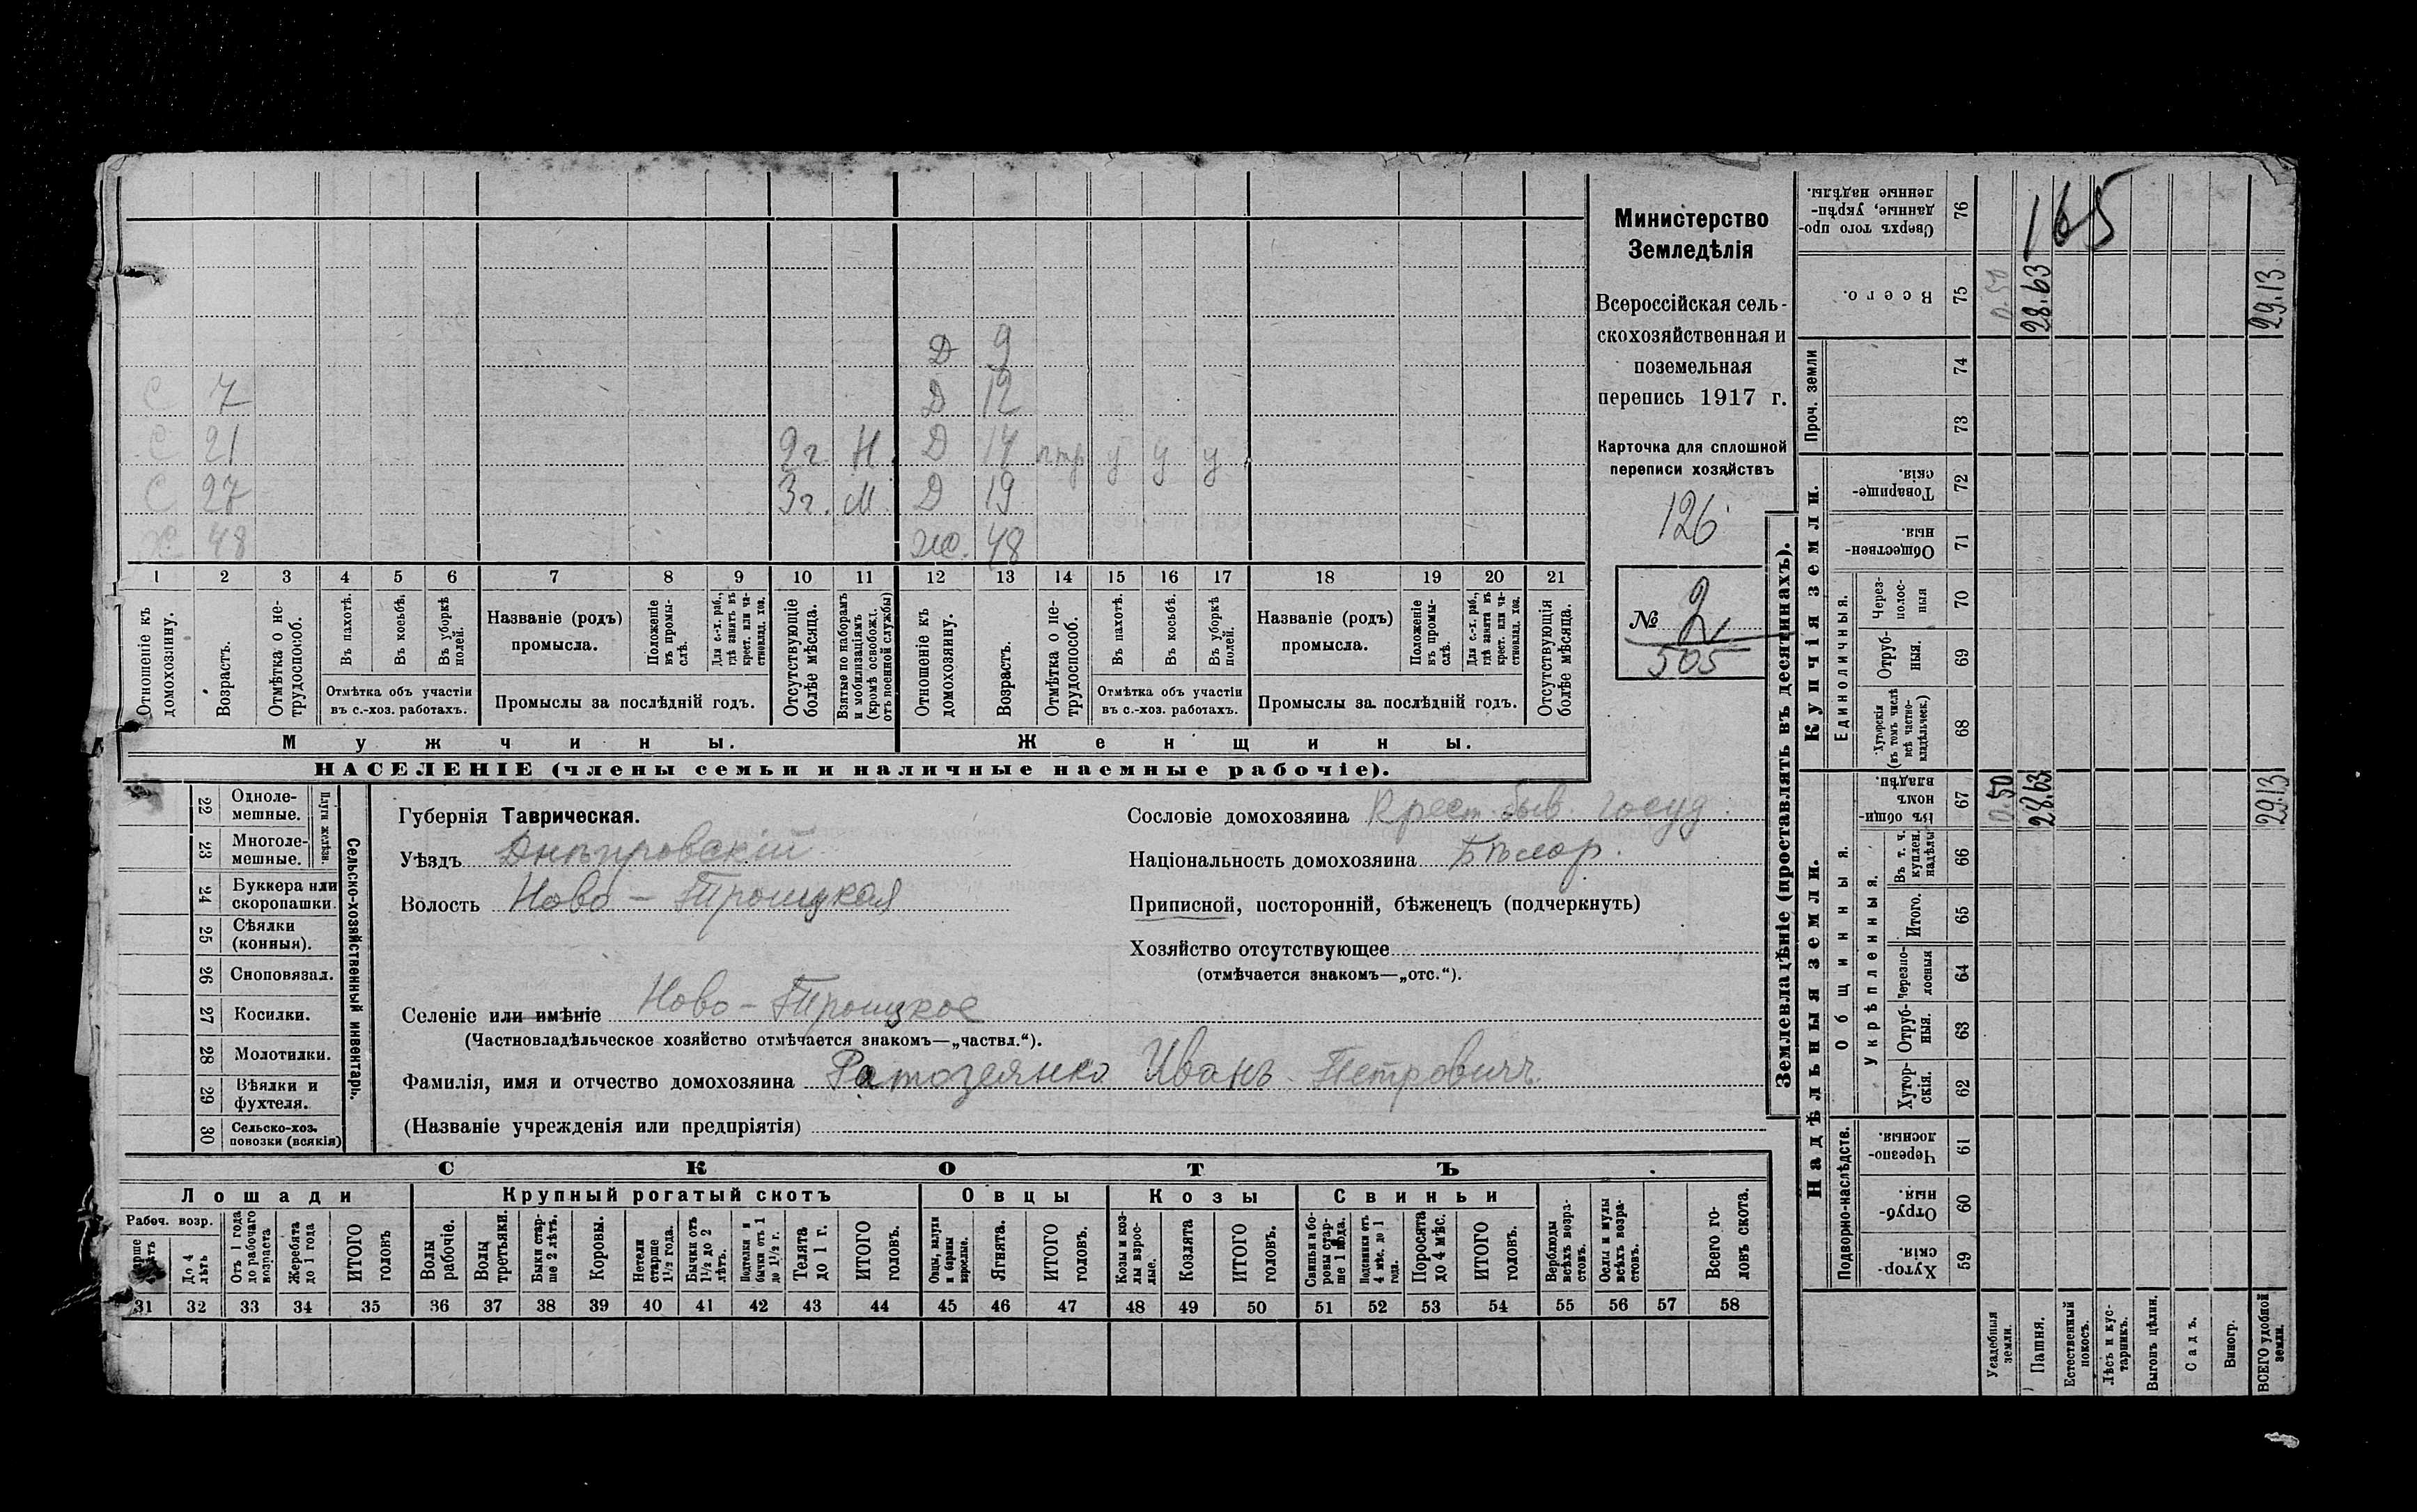 Министерство
Земледѣлія
Всероссійская сель-
скохозяйственная и
поземельная
перепись 1917 г.
Карточка для сплошной
переписи хозяйствъ
126
№ 2
505
Д 9
С 7 Д 12
С 21 9 г. Н. Д 14 у у у
С 27 3 г. М. Д 19
Х. 48 Ж. 48
1 2 3 4 5 6 7 8 9 10 11 12 13 14 15 16 17 18 19 20 21
Отношеніе къ домохозяину.
Возрастъ.
Отмѣтка о не-трудоспособ.
Въ пахотѣ.
Въ косьбѣ.
Въ уборкѣ полей.
Отмѣтка объ участіи въ с.-хоз. работахъ.
Названіе (родъ) промысла.
Положеніе въ промы-слѣ.
Для с.-х. раб., гдѣ занятъ въ крест. или ча-стновлад. хоз.
Промыслы за послѣдній годъ.
Отсутствующіе болѣе мѣсяца.
Взятые по наборамъ и мобилизаціямъ (кромѣ освобожд. отъ военной службы)
Отношеніе къ домохозяину.
Возрастъ.
Отмѣтка о не-трудоспособ.
Въ пахотѣ.
Въ косьбѣ.
Въ уборкѣ полей.
Отмѣтка объ участіи въ с.-хоз. работахъ.
Названіе (родъ) промысла.
Положеніе въ промы-слѣ.
Для с.-х. раб., гдѣ занята въ крест. или ча-стновлад. хоз.
Промыслы за послѣдній годъ.
Отсутствующія болѣе мѣсяца.
Мужчины. Женщины.
НАСЕЛЕНІЕ (члены семьи и наличные наемные рабочіе).
Сельско-хозяйственный инвентарь.
Плуги желѣзн.
22 Одноле-мешные.
23 Многоле-мешные.
24 Буккера или скоропашки.
25 Сѣялки (конныя).
26 Сноповязал.
27 Косилки.
28 Молотилки.
29 Вѣялки и фухтеля.
30 Сельско-хоз. повозки (всякія)
Губернія Таврическая.
Уѣздъ Днѣпровскій
Волость Ново-Троицкая
Сословіе домохозяина Крест. быв. госуд.
Національность домохозяина Бѣлор.
Приписной, посторонній, бѣженецъ (подчеркнуть)
Хозяйство отсутствующее
(отмѣчается знакомъ—„отс.“).
Селеніе или имѣніе Ново-Троицкое
(Частновладѣльческое хозяйство отмѣчается знакомъ—„частвл.“).
Фамилія, имя и отчество домохозяина Иванъ Петровичъ
(Названіе учрежденія или предпріятія)
СКОТЪ
Лошади Крупный рогатый скотъ Овцы Козы Свиньи
Рабоч. возр.
До 4 лѣтъ
Отъ 1 года до рабочаго возраста
Жеребята до 1 года
ИТОГО головъ
Волы рабочіе.
Волы третьяки.
Быки стар-ше 2 лѣтъ.
Коровы.
Нетели старше 1½ года.
Бычки отъ 1½ до 2 лѣтъ.
Подтелки и бычки отъ 1 до 1½ г.
Телята до 1 г.
ИТОГО головъ.
Овцы, валухи и бараны взрослые.
Ягнята.
ИТОГО головъ.
Козы и коз-лы взрос-лые.
Козлята
ИТОГО головъ.
Свиньи и бо-ровы стар-ше 1 года.
Подсвинки отъ 4 мѣс. до 1 года.
Поросята до 4 мѣс.
ИТОГО головъ.
Верблюды всѣхъ возра-стовъ.
Ослы и мулы всѣхъ возра-стовъ.
Всего го-ловъ скота.
31 32 33 34 35 36 37 38 39 40 41 42 43 44 45 46 47 48 49 50 51 52 53 54 55 56 57 58
Землевладѣніе (проставлять въ десятинахъ).
Надѣльныя земли. Купчія земли. Проч. земли
Подворно-наслѣдств.
Общинныя.
Укрѣпленныя.
Единоличныя.
59 Хутор-скія.
60 Отруб-ныя.
61 Черезпо-лосныя.
62 Хутор-скія.
63 Отруб-ныя.
64 Черезпо-лосныя
65 Итого.
66 Въ т. ч. куплен. надѣлы
67 Въ общин-номъ владѣн.
68 Хуторскія (въ томъ числѣ всѣ частно-владѣльческ.)
69 Отруб-ныя.
70 Через-полос-ныя
71 Обществен-ныя
72 Товарище-скія.
73
74
75 Всего.
76 Сверхъ того про-данные, укрѣп-ленные надѣлы.
Усадебныя земли. 0.50 0.50
Пашня. 28.63 28.63
Естественный покосъ.
Лѣсъ и кус-тарникъ.
Выгонъ цѣлин.
Садъ.
Виногр.
ВСЕГО удобной земли. 29.13 29.13
165